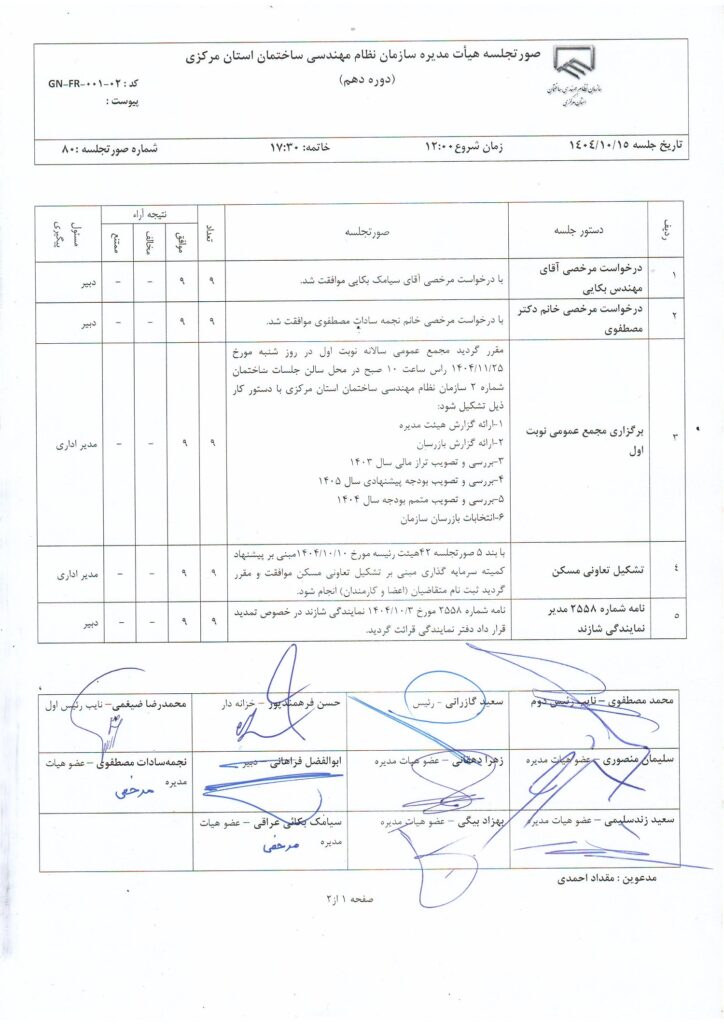 صورتجلسه هیأت مدیره سازمان نظام مهندسی ساختمان استان مرکزی
(دوره دهم)
سازمان نظام مهندسی ساختمان
استان مرکزی
کد : GN-FR-۰۰۱-۰۲
پیوست :
تاریخ جلسه ۱۴۰۴/۱۰/۱۵ زمان شروع ۱۲:۰۰ خاتمه: ۱۷:۳۰ شماره صورتجلسه :۸۰
ردیف دستور جلسه صورتجلسه تعداد نتیجه آراء مسئول پیگیری
موافق مخالف ممتنع
۱ درخواست مرخصی آقای مهندس بکایی با درخواست مرخصی آقای سیامک بکایی موافقت شد. ۹ ۹ – – دبیر
۲ درخواست مرخصی خانم دکتر مصطفوی با درخواست مرخصی خانم نجمه سادات مصطفوی موافقت شد. ۹ ۹ – – دبیر
۳ برگزاری مجمع عمومی نوبت اول
مقرر گردید مجمع عمومی سالانه نوبت اول در روز شنبه مورخ
۱۴۰۴/۱۱/۲۵ راس ساعت ۱۰ صبح در محل سالن جلسات ساختمان
شماره ۲ سازمان نظام مهندسی ساختمان استان مرکزی با دستور کار
ذیل تشکیل شود:
۱-ارائه گزارش هیئت مدیره
۲-ارائه گزارش بازرسان
۳-بررسی و تصویب تراز مالی سال ۱۴۰۳
۴-بررسی و تصویب بودجه پیشنهادی سال ۱۴۰۵
۵-بررسی و تصویب متمم بودجه سال ۱۴۰۴
۶-انتخابات بازرسان سازمان
۹ ۹ – – مدیر اداری
۴ تشکیل تعاونی مسکن
با بند ۵ صورتجلسه ۴۲هیئت رئیسه مورخ ۱۴۰۴/۱۰/۱۰مبنی بر پیشنهاد
کمیته سرمایه گذاری مبنی بر تشکیل تعاونی مسکن موافقت و مقرر
گردید ثبت نام متقاضیان (اعضا و کارمندان) انجام شود.
۹ ۹ – – مدیر اداری
۵ نامه شماره ۲۵۵۸ مدیر نمایندگی شازند
نامه شماره ۲۵۵۸ مورخ ۱۴۰۴/۱۰/۳ نمایندگی شازند در خصوص تمدید
قرار داد دفتر نمایندگی قرائت گردید.
۹ ۹ – – دبیر
محمد مصطفوی – نایب رئیس دوم سعید گازرانی - رئیس حسن فرهمندپور – خزانه دار محمدرضا ضیغمی – نایب رئیس اول
سلیمان منصوری – عضو هیات مدیره زهرا دهقانی – عضو هیات مدیره ابوالفضل فراهانی – دبیر نجمه‌سادات مصطفوی – عضو هیات مدیره مرخصی
سعید زندسلیمی – عضو هیات مدیره بهزاد بیگی – عضو هیات مدیره سیامک بکائی عراقی – عضو هیات مدیره مرخصی
مدعوین : مقداد احمدی
صفحه ۱ از۲